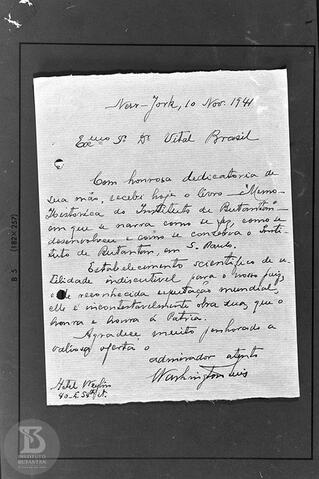 New-York, 10 Nov. 1941
Exmo Sr. Dr Vital Brasil
Com honrosa dedicatoria de
sua mão, recebi hoje o livro "Memo-
Historica do Instituto de Butantan"
em que se narra como se fez, como se
desenvolveu e como se conserva o Insti-
tuto de Butantan, em S. Paulo.
Estabelecimento scientifico de u-
tilidade indiscutivel para o nosso paiz,
e de reconhecida reputação mundial,
elle é incontestavelmente obra sua, que o
honra e honra á Patria.
Agradece muito penhorado a
valiosa oferta o
admirador atento
Washington Luis
Hotel Weylin
40. E. 54th St.
B S (182 A 257)
INSTITUTO
BUTANTAN